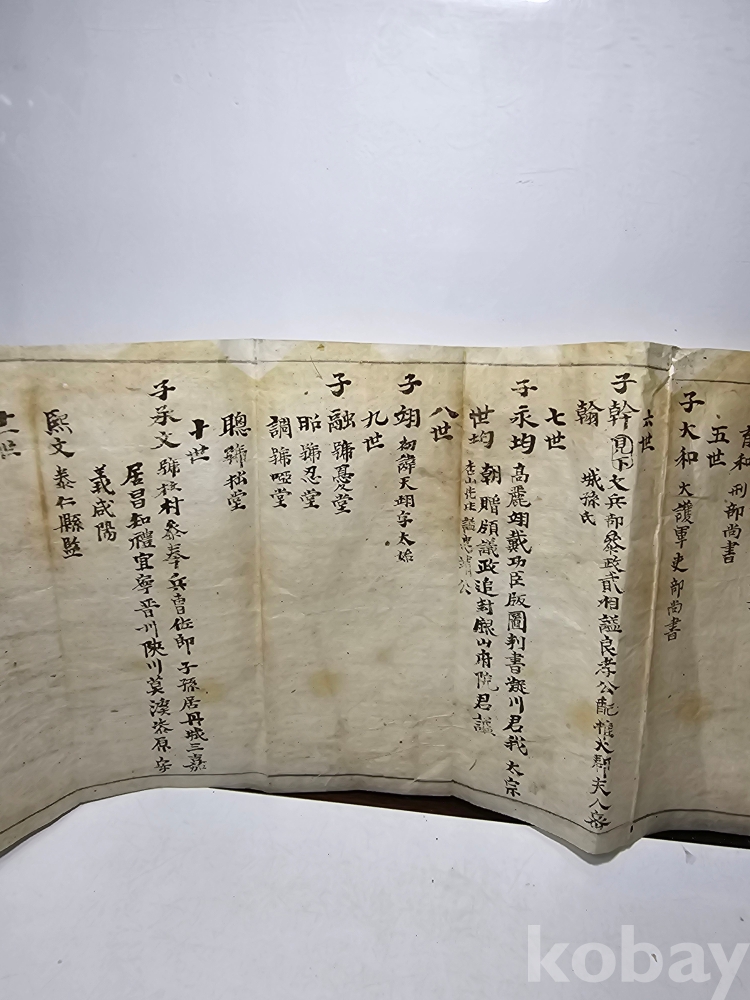 育和 刑部尚書
五世
子 大和 大護軍吏部尚書
六世
子 幹 見下文 兵部叅政貳相謚良孝公配 大郡夫人密
城孫氏
翰
七世
子 永均 高麗翊戴功臣版圖判書凝川君我 太宗
朝 贈領議政追封銀山府院君謚
世均
八世
子 翊 初諱天翊字大
九世
子 融號憂堂
昭號忍堂
調號啞堂
聰號拙堂
十世
子 承文 號 村叅奉兵曹佐郎 子孫居丹城三嘉
居昌知禮宜寧晋州陜川 原安
義咸陽
熙文 泰仁縣監
十一世
kobay